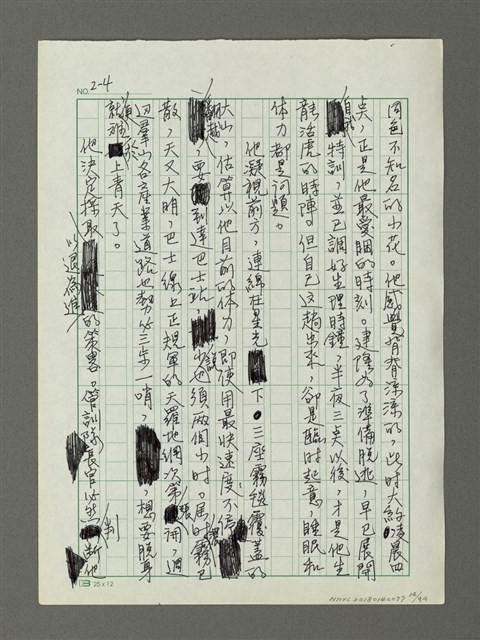 NO. 2-4
同色不知名的小花。他感覺背脊涼涼的，此時大約凌晨四
點，正是他最愛睏的時刻。建隆為了準備脫逃，早已展開
自我特訓，並已調好生理時鐘，半夜三點以後，才是他生
龍活虎的時陣。但自己這趟出來，卻是臨時起意，睡眠和
體力都是問題。
他凝視前方，連綿在星光下，三座霧毯覆蓋的
大山，估算以他目前的體力，即使用最快速度不停
翻越，要到達巴士站，少說也須兩個小時。屆時霧已
散，天又大明，巴士線上正規軍的天羅地網次第張開，週
邊羣山各產業道路也勢必三步一哨，想要脫身
就難於上青天了。
他決定採取以退為進的策略。管訓隊長官必然判斷他
25x12
NMTL20180140097 12/44